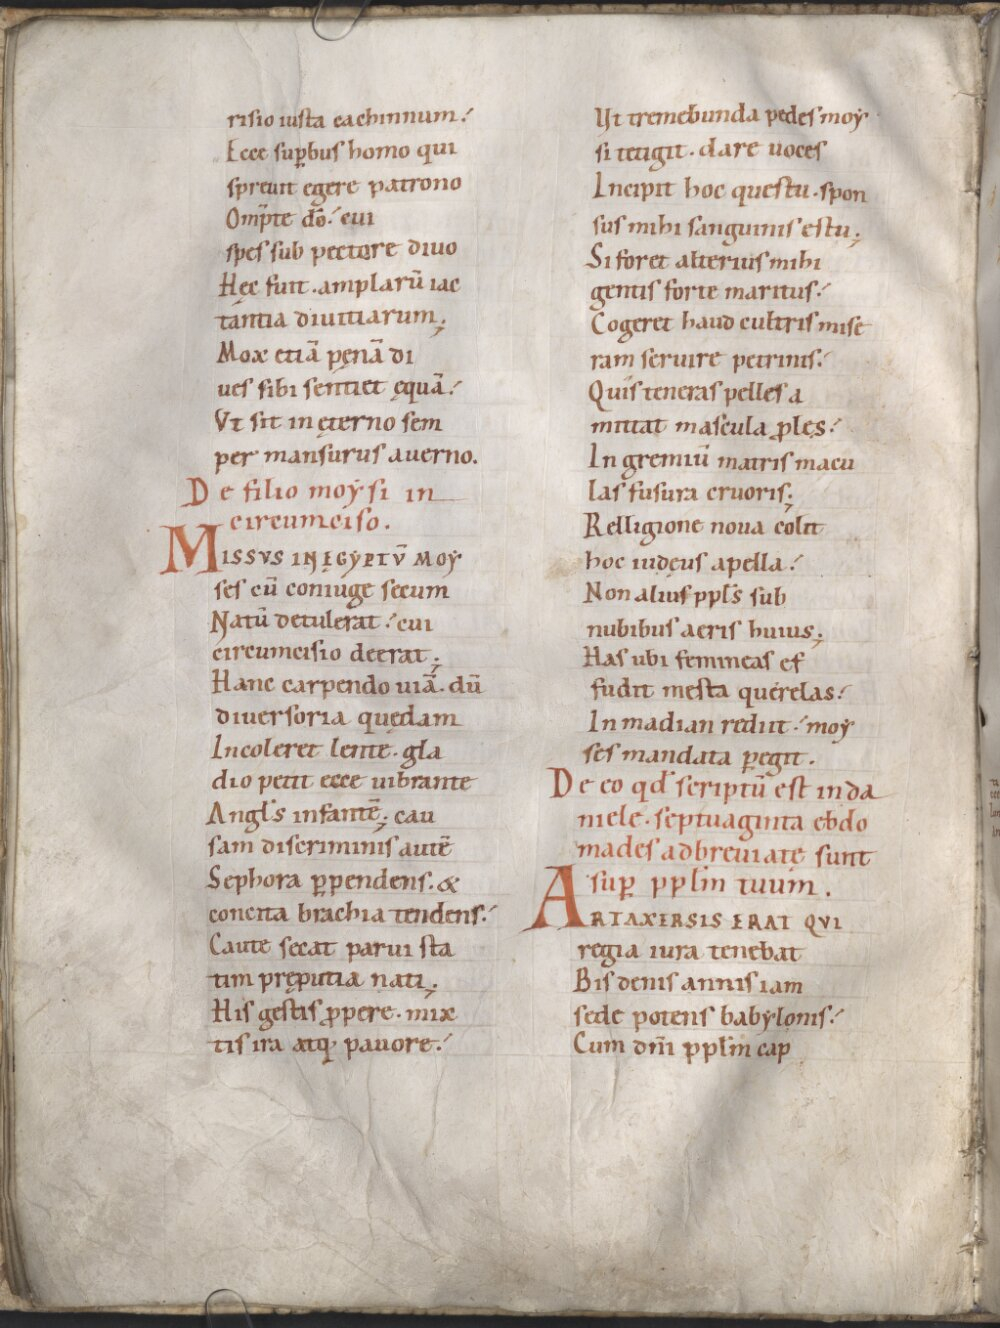 risio iusta cachinnum:
Ecce sup̄bus homo qui
spreuit egere patrono
Om̄pte dō: cui
spes sub pectore diuo
Hęc fuit. amplarū iac
tantia diuitiarum;
Mox etiā pęnā di
ues sibi sentiet ęquā:
Vt sit in ęterno sem
per mansurus auerno.
De filio moẏsi in
circumciso.
MISSVS IN EGẎPTV̄ MOẎ
ses cū coniuge secum
Natū detulerat: cui
circumcisio deerat;
Hanc carpendo uiā. dū
diuersoria quędam
Incoleret lente. gla
dio petit ecce uibrante
Angl̄s infantē; cau
sam discriminis autē
Sephora ꝑpendens. &
concita brachia tendens:
Caute secat parui sta
tim pręputia nati;
His gestis ꝓpere. mix
tis ira atq; pauore:
Vt tremebunda pedes moẏ
si tetigit. dare uoces
Incipit hoc questu. spon
sus mihi sanguinis estu;
Si foret alterius mihi
gentis forte maritus:
Cogeret haud cultris mise
ram seruire petrinis:
Quis teneras pelles a
mittat mascula ꝓles:
In gremiū matris macu
las fusura cruoris;
Relligione noua colit
hoc iudęus apella:
Non alius ppl̄s sub
nubibus aeris huius;
Has ubi femineas ef
fudit mesta querelas:
In madian rediit: moẏ
ses mandata ꝑegit.
De eo qd̄ scriptū est in da
niele. septuaginta ebdo
mades adbreuiate sunt
sup̄ ppl̄m tuum.
ARTAXERSIS ERAT QVI
regia iura tenebat
Bis denis annis iam
sede potens babẏlonis:
Cum dn̄i ppl̄m cap